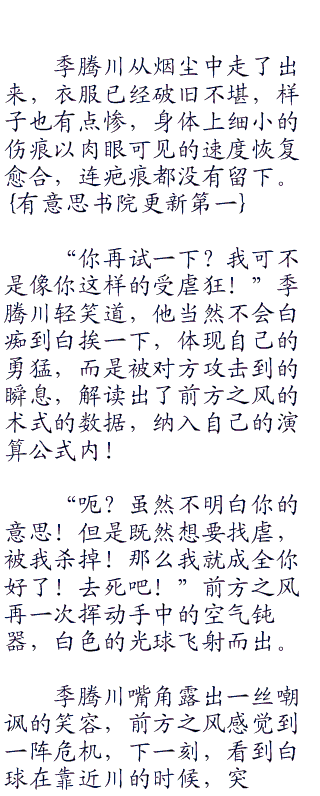 季腾川从烟尘中走了出
来，衣服已经破旧不堪，样
子也有点惨，身体上细小的
伤痕以肉眼可见的速度恢复
愈合，连疤痕都没有留下。
{有意思书院更新第一}
“你再试一下？我可不
是像你这样的受虐狂！”季
腾川轻笑道，他当然不会白
痴到白挨一下，体现自己的
勇猛，而是被对方攻击到的
瞬息，解读出了前方之风的
术式的数据，纳入自己的演
算公式内！
“呃？虽然不明白你的
意思！但是既然想要找虐，
被我杀掉！那么我就成全你
好了！去死吧！”前方之风
再一次挥动手中的空气钝
器，白色的光球飞射而出。
季腾川嘴角露出一丝嘲
讽的笑容，前方之风感觉到
一阵危机，下一刻，看到白
球在靠近川的时候，突